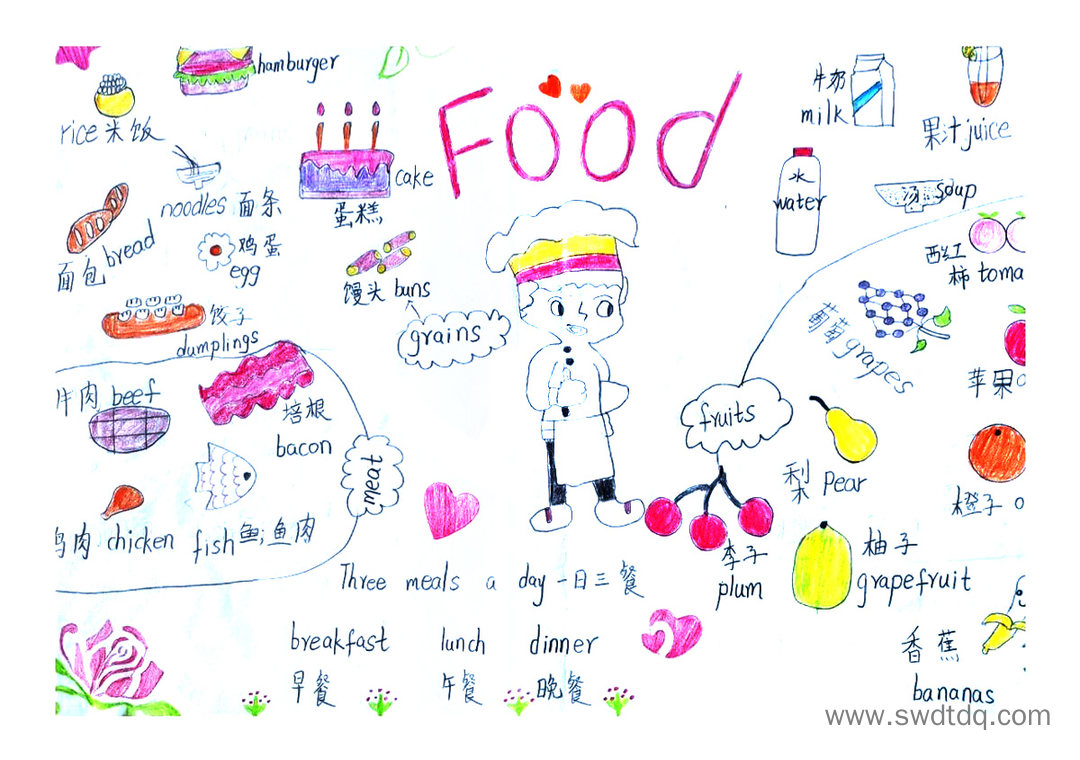 hamburger
Food
牛奶
milk
果汁 juice
rice 米饭
水
water
汤 soup
cake
蛋糕
noodles 面条
鸡蛋
egg
bread
面包
馒头 buns
grains
西红
柿 toma
饺子
dumplings
葡萄 grapes
苹果
牛肉 beef
培根
bacon
meat
fruits
梨 Pear
橙子 o
肉 chicken
fish 鱼;鱼肉
李子
plum
柚子
grapefruit
Three meals a day 一日三餐
breakfast lunch dinner
早餐 午餐 晚餐
香蕉
bananas
www.swdtdq.com